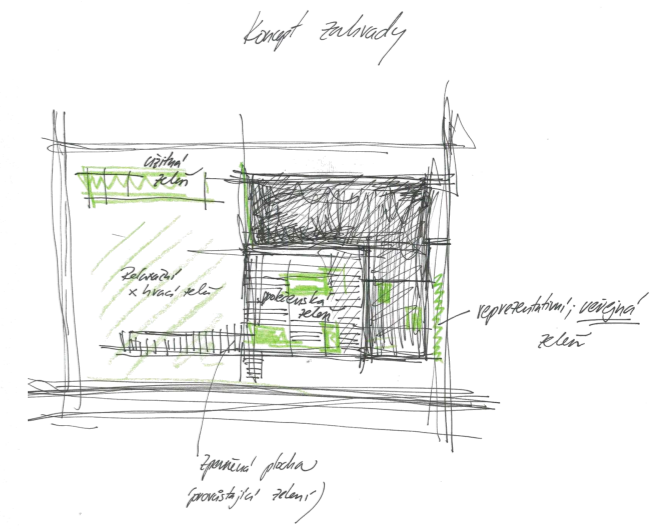 Koncept zahrady
užitná
zeleň
Relaxační
x hrací zeleň
společenská
zeleň
reprezentativní; veřejná
zeleň
Zpevněná plocha
(prorůstající zelení)